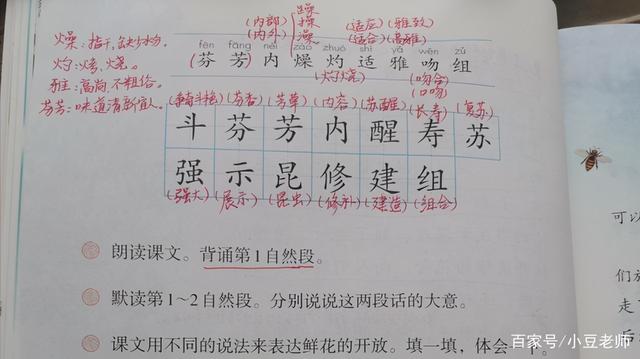 (内部) 躁 (适应) (雅致)
(内外) 操 (适合) (高雅)
燥
燥:指干,缺少水份。
灼:烤、烧。
雅:高尚,不粗俗。
芬芳:味道清新宜人。
fēn fāng nèi zào zhuó shì yǎ wěn zǔ
(芬芳)内燥灼适雅吻组
(灼烧) (吻合)
(口吻)
(争奇斗艳) (芬香) (芳草) (内容) (苏醒) (长寿) (复苏)
斗芬芳内醒寿苏
强示昆修建组
(强大) (展示) (昆虫) (修补) (建造) (组合)
朗读课文。背诵第1自然段。
默读第1~2自然段。分别说说这两段话的大意。
课文用不同的说法来表达鲜花的开放。填一填,体会一下
可以
们放
走
后
百家号/小豆老师